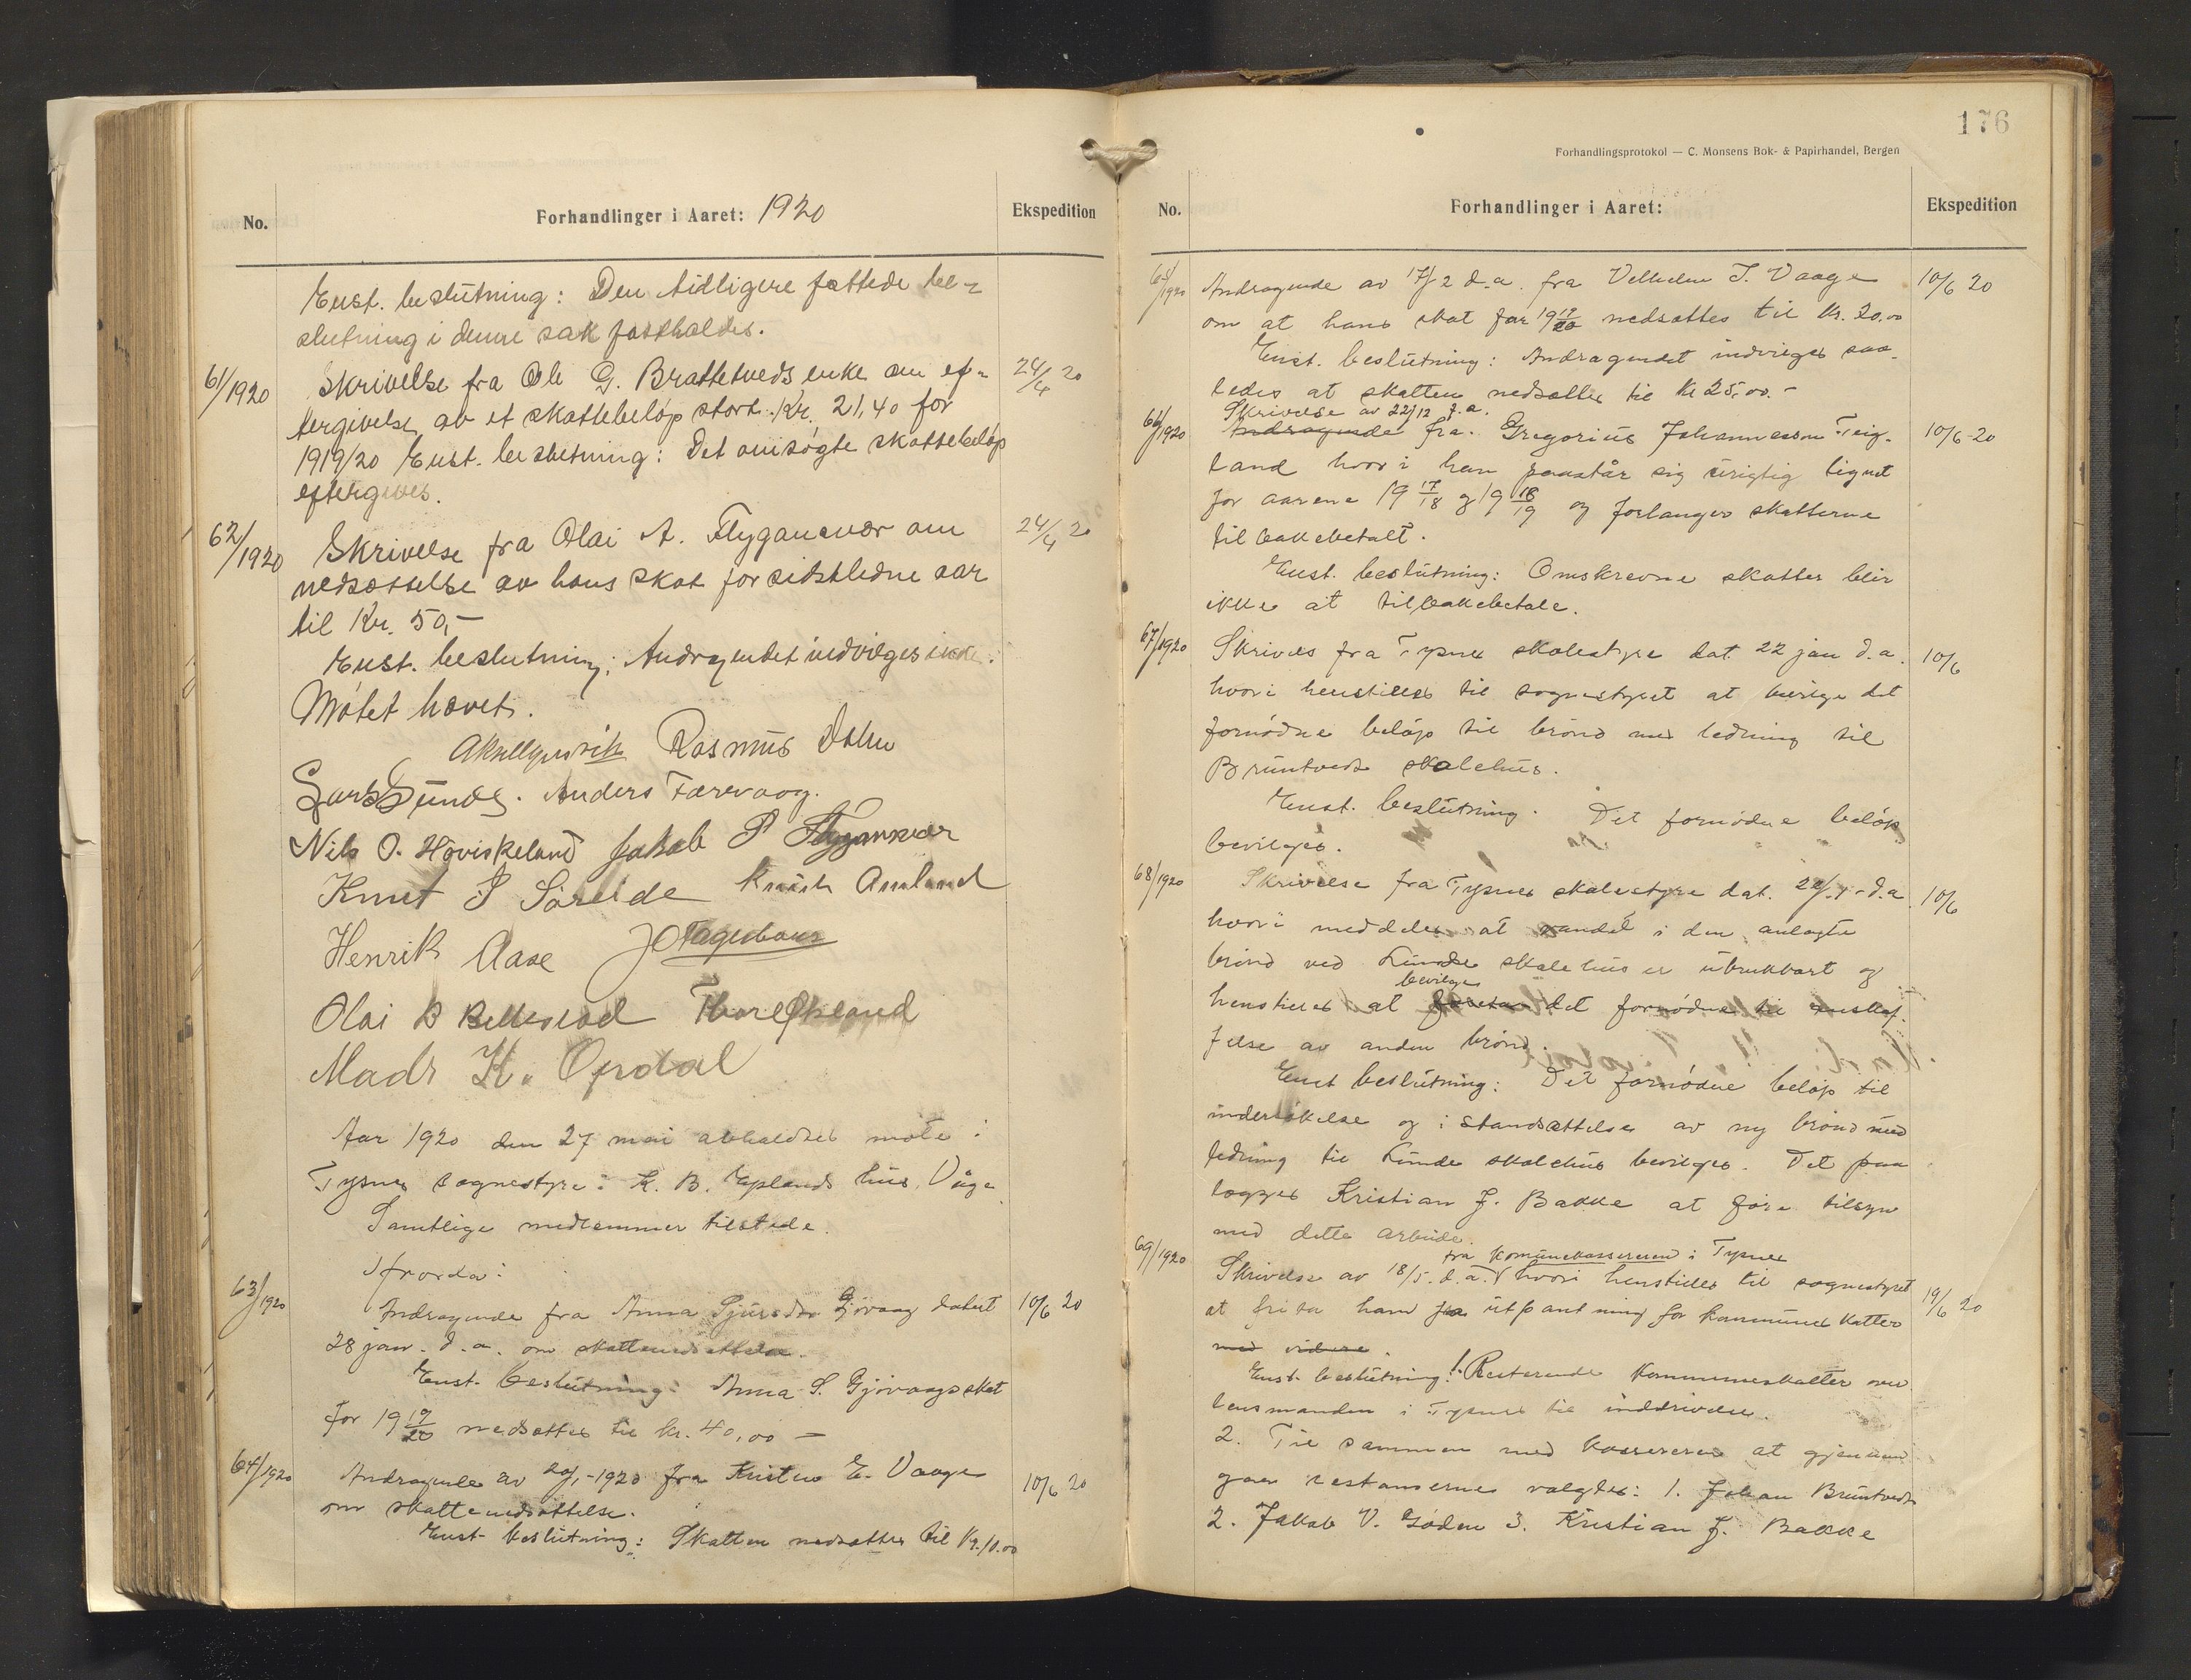 No.
Forhandlinger i Aaret: 1920
Ekspedition
Enst. beslutning: Den tidligere fattede be-
slutning i denne sak fastholdes.
61/1920 Skrivelse fra Ole G. Brattetveds enke om ef- 24/4 20
tergivelse av et skattebeløp stort Kr. 21,40 for
1919/20 Enst. beslutning: Det omsøgte skattebeløp
eftergives.
62/1920 Skrivelse fra Olai A. Flyganvær om 24/4 20
nedsættelse av hans skat for sidstledne aar
til Kr. 50,-
Enst. beslutning: Andragendet indvilges ikke.
Møtet hævet.
Rasmus
Lars Sunde. Anders Færevaag.
Nils O. Høviskeland Jakob P Flyganvær
Knut S Søreide Knut Amland
Henrik Aase J O Hageberg
Olai B Belleslad Thore Økland
Mads K. Opdal
Aar 1920 den 27 mai avholdtes møte i
Tysnes sognestyre i K. B. Eplands hus, Våge
Samtlige medlemmer tilstede.
Ifrorda:
63/1920 Andragende fra Anna Sjursdtr Gjøvaag datert 10/6 20
28 jan. d.a. om skattenedsættelse.
Enst. beslutning: Anna S. Gjøvaags skat
for 19 19/20 nedsættes til kr. 40,00 –
64/1920 Andragende av 20/1-1920 fra Kristen E. Vaage 10/6 20
om skattenedsættelse.
Enst. beslutning: Skatten nedsættes til Kr. 10.00
176
Forhandlingsprotokol — C. Monsens Bok- & Papirhandel, Bergen
No.
Forhandlinger i Aaret:
Ekspedition
65/1920 Andragende av 17/2 d.a. fra Velhelm T. Vaage 10/6 20
om at hans skat for 19 19/20 nedsættes til Kr. 20.00
Enst. beslutning: Andragendet indvilges saa-
ledes at skatten nedsættes til kr 25,00.-
Skrivelse av 22/12 f.a.
66/1920 Andragende fra Gregorius Johannessen Teig- 10/6-20
land hvori han paastår sig urigtig lignet
for aarene 19 17/18 og 19 18/19 og forlanger skatterne
tilbakebetalt.
Enst. beslutning: Omskrevne skatter blir
ikke at tilbakebetale.
67/1920 Skrives fra Tysnes skolestyre dat. 22 jan d.a. 10/6
hvori henstilles til sognestyret at bevilge det
fornødne beløp til brønd med ledning til
Bruntveds skolehus.
Enst. beslutning. Det fornødne beløp
bevilges.
68/1920 Skrivelse fra Tysnes skolestyre dat. d.a. 10/6
hvori meddeles at vandet i den anlagte
brønd ved Lunde skolehus er ubrukbart og
bevilge
henstilles at det fornødne til anskaf-
felse av anden brønd.
Enst beslutning: Det fornødne beløp til
undersøkelse og i standsættelse av ny brønd med
ledning til Lunde skolehus bevilges. Det paa
lægges Kristian J. Bakke at føre tilsyn
med dette arbeide.
fra kommunekassereren i Tysnes
69/1920 Skrivelse av 18/5. d.a. hvori henstilles til sognestyret 19/6 20
at frita ham fra utpantning for kommuneskatter
med videre.
Enst. beslutning: 1. Resterende kommuneskatter over
lensmanden i Tysnes til inddrivelse.
2. Til sammen med kassereren at gjennem
gaa restanserne valgtes: 1. Johan Bruntveds
2. Jakob V. Gjøden 3. Kristian J. Bakke